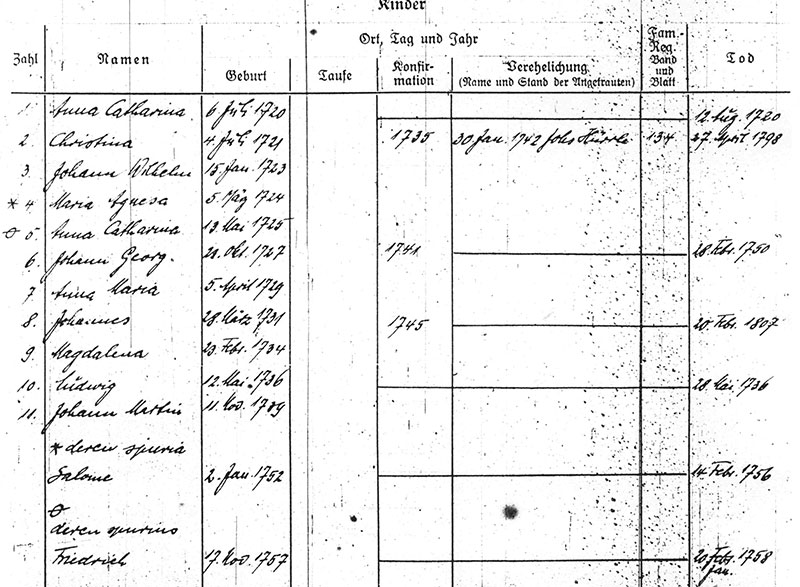 Kinder
Zahl
Namen
Ort, Tag und Jahr
Geburt
Taufe
Konfir-
mation
Verehelichung
(Name und Stand der Angetrauten)
Fam.-
Reg.
Band
und
Blatt
Tod
1. Anna Catharina 6 Juli 1720 12 Aug. 1720
2. Christina 4. Juli 1721 1735 30 Jan. 1742 Johs Hürrle 134 27. April 1798
3. Johann Wilhelm 15. Jan. 1723
* 4. Maria Agnesa 5. März 1724
5. Anna Catharina 13. Mai 1725
6. Johann Georg. 21. Okt. 1727 1741 28. Febr. 1750
7. Anna Maria 5. April 1729
8. Johannes 28. März 1731 1745 20. Febr. 1807
9. Magdalena 23. Febr. 1734
10. Ludwig 12. Mai 1736 28 Mai 1736
11. Johann Martin 11. Nov. 1739
* deren spuria
Salome 2. Jan. 1752 14. Febr. 1756
deren spurius
Friedrich 17. Nov. 1757 20 Febr. 1758
Jan.